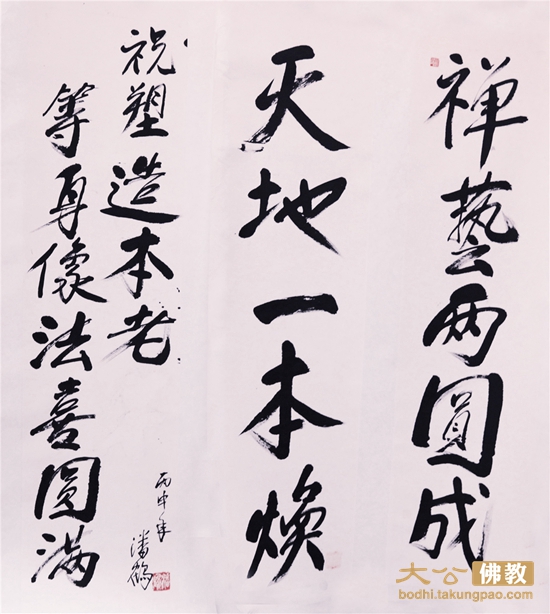 禅藝两圓成
天地一本焕
祝塑造本老
等身像法喜圓满
丙申年
潘鹤
大公佛教
bodhi.takungpao.com